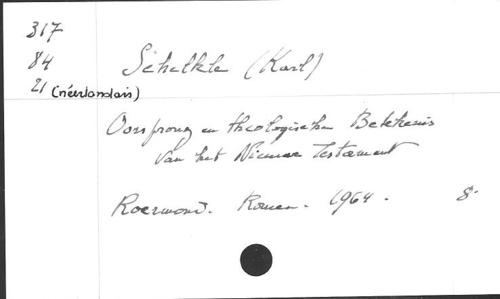 317
84
21 (néerlandais)
Schelkle (Karl)
Oorsprong en theologischen Betekenis
van het Nieuwe Testament
Roermond. Romen. 1964. 8°